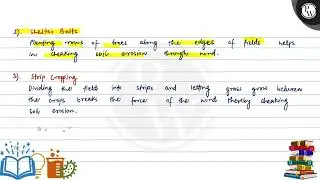 2). Shelter Belts
Planting rows of trees along the edges of fields helps
in cheaking soil erosion through wind.
3). Strip Cropping
Dividing the field into strips and letting grass grow between
the crops breaks the force of the wind thereby cheaking
soil erosion.